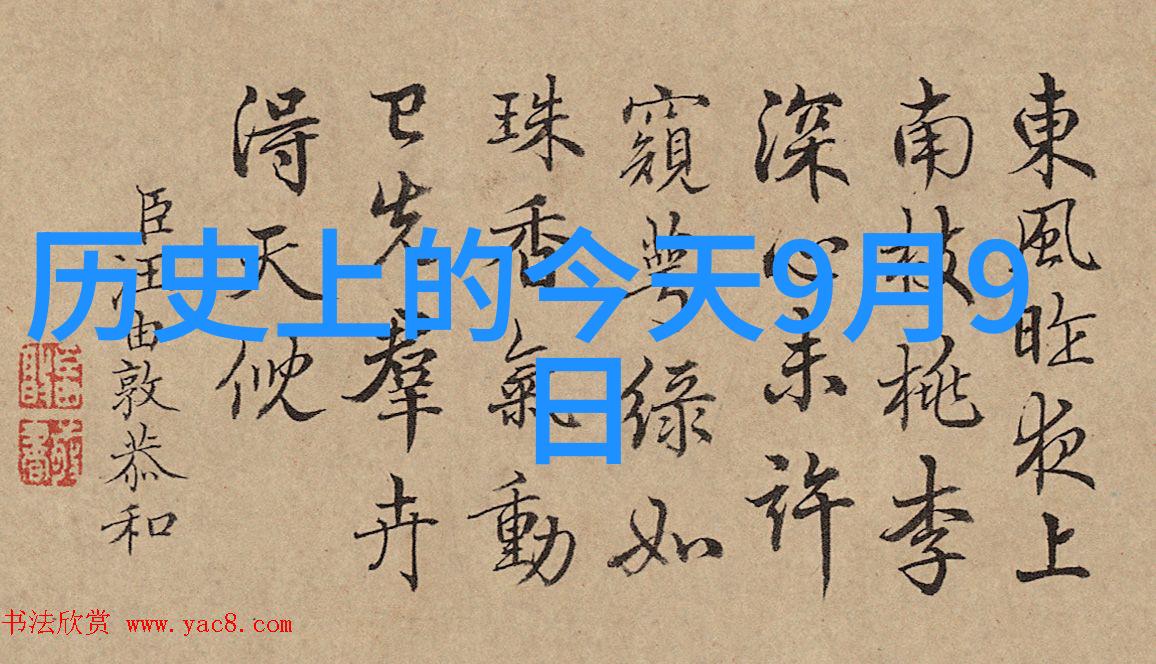 東風昨夜上
南枝桃李
深心未許
窺萼綠如
珠香氣動
已先羣卉
得天倪
臣汪由敦恭和
历史上的今天9月9
日
书法欣赏 www.yac8.com